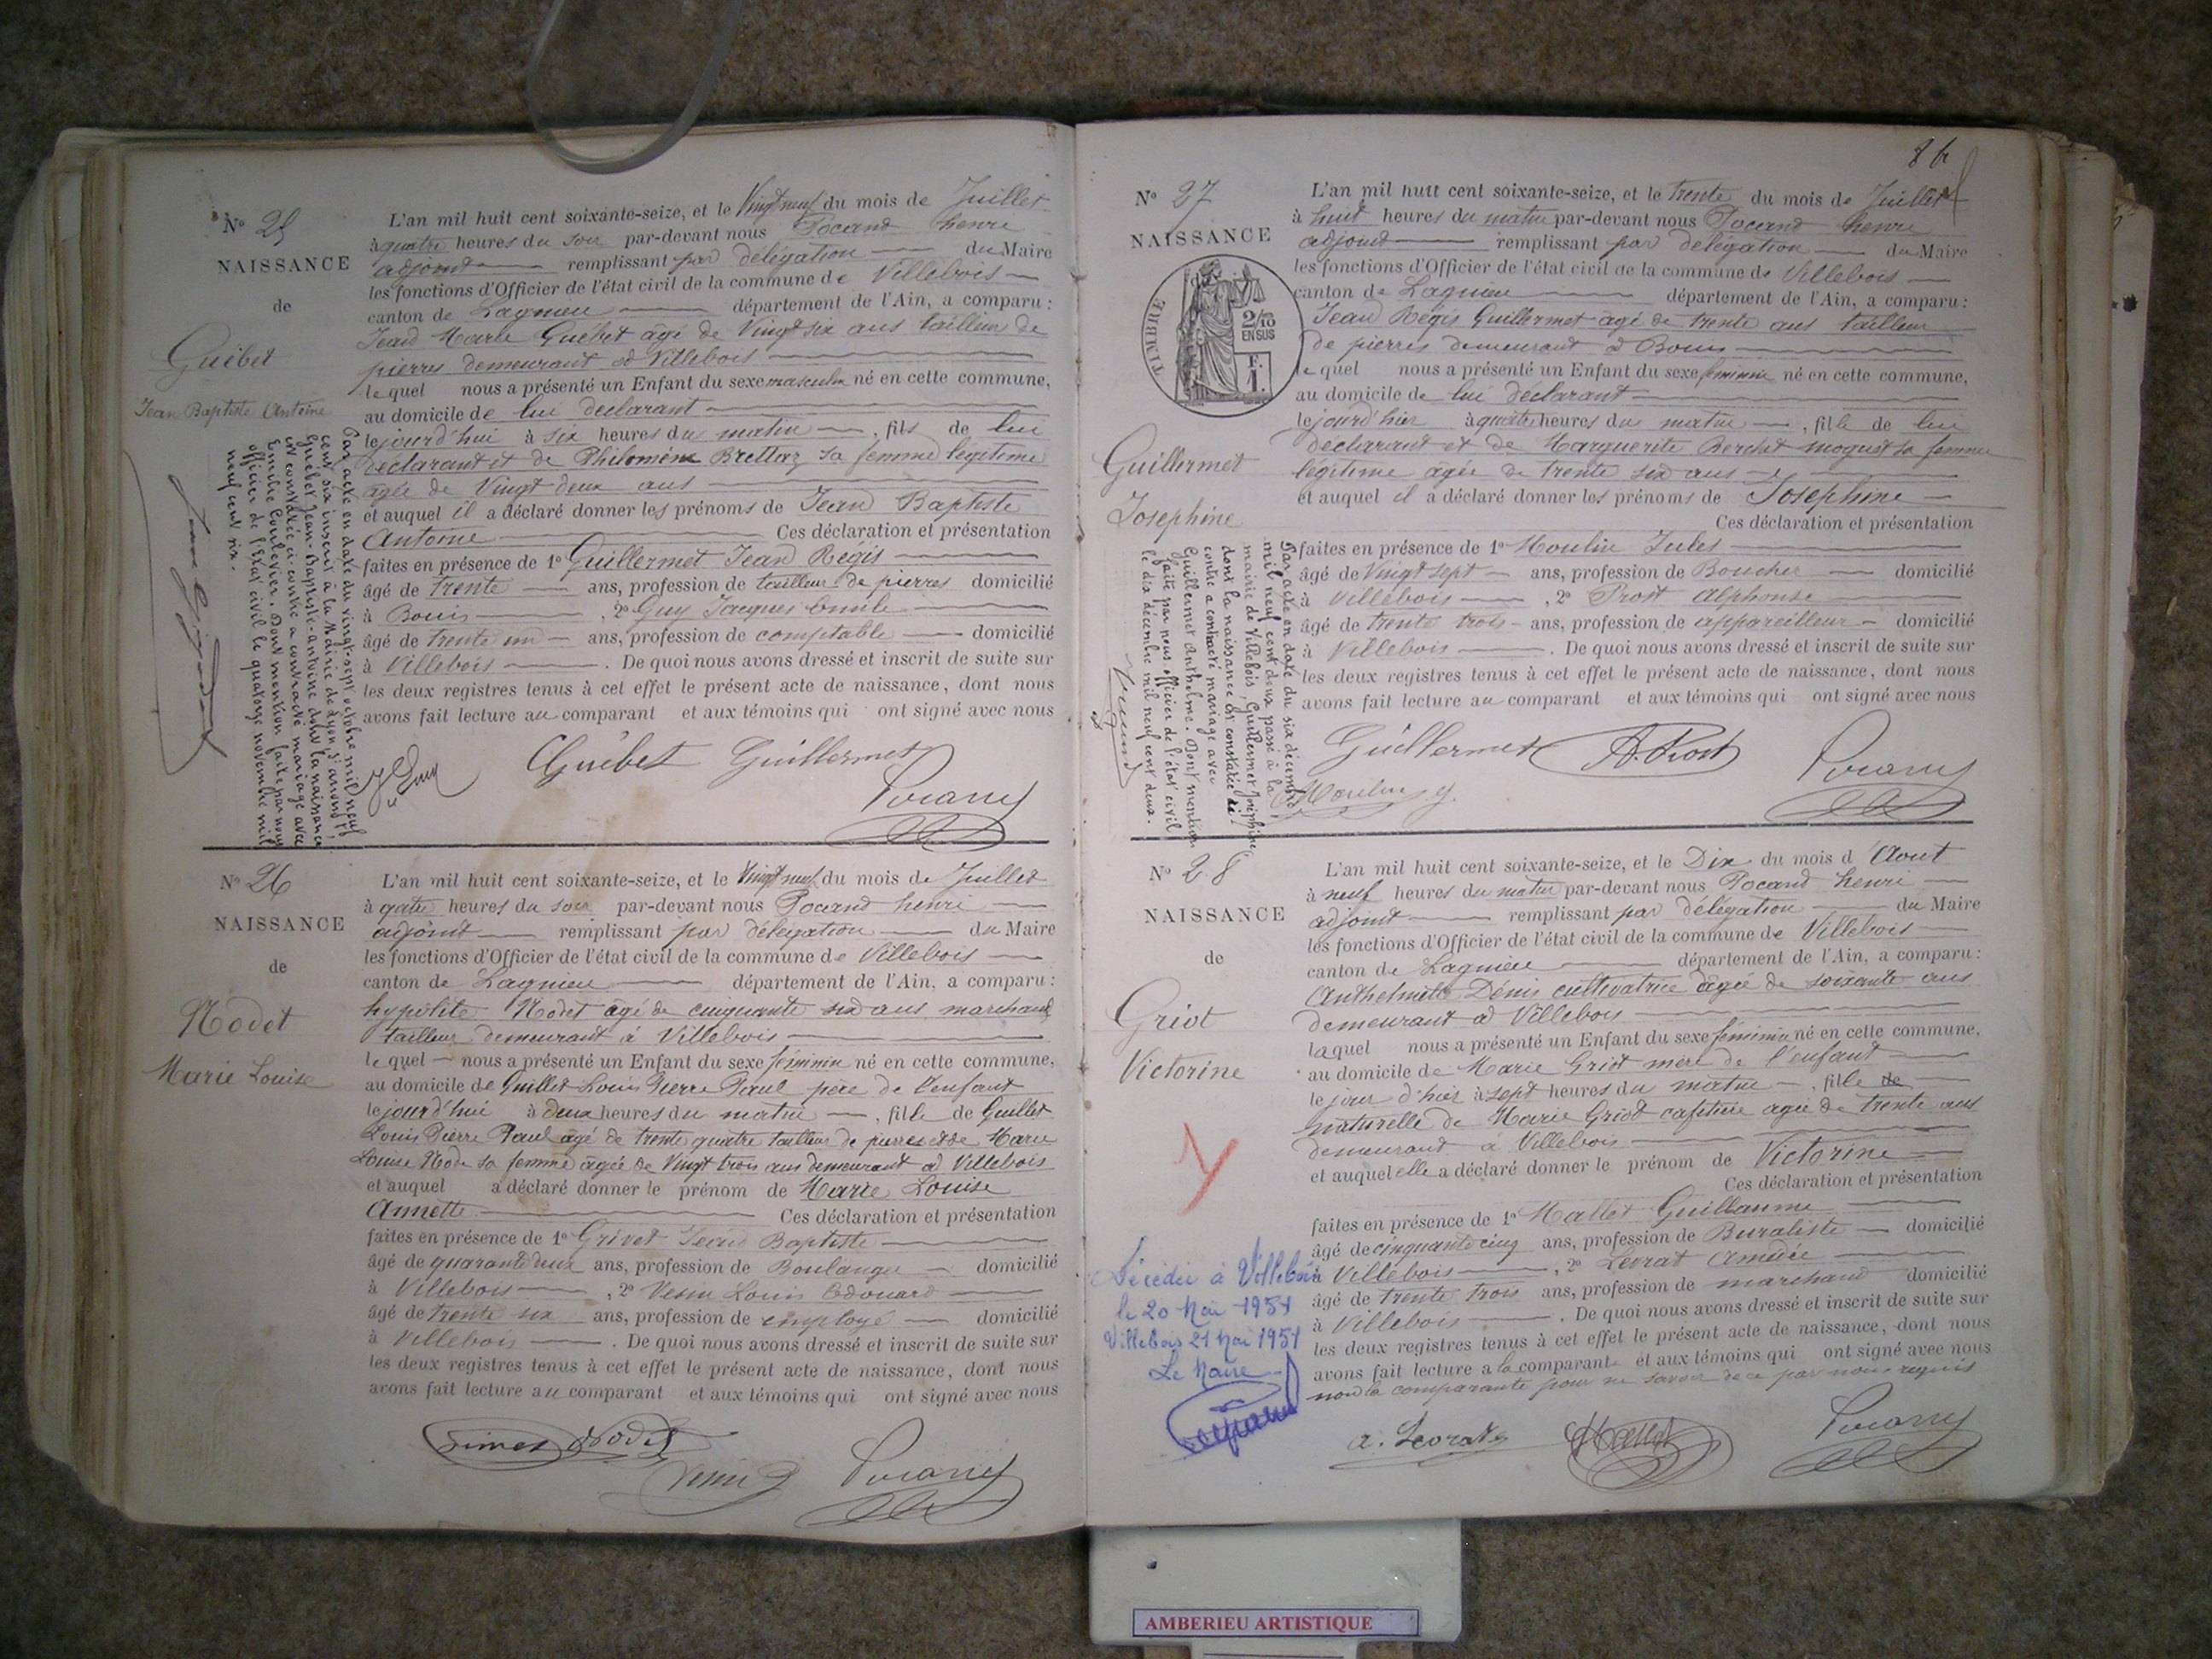 Nº 25
NAISSANCE
de
Guébet
Jean Baptiste Antoine
L'an mil huit cent soixante-seize, et le Vingt neuf du mois de Juillet
à quatre heures du soir par-devant nous Pocand henri
adjoint remplissant par délégation du Maire
les fonctions d'Officier de l'état civil de la commune de Villebois
canton de Lagnieu département de l'Ain, a comparu :
Jean Marie Guébet agé de Vingt six ans tailleur de
pierres demeurant à Villebois
lequel nous a présenté un Enfant du sexe masculin né en cette commune,
au domicile de lui déclarant
le jourd'hui à six heures du matin, fils de lui
déclarant et de Philomène Brettaz sa femme légitime
agée de Vingt deux ans
et auquel il a déclaré donner les prénoms de Jean Baptiste
Antoine Ces déclaration et présentation
faites en présence de 1º Guillermet Jean Régis
âgé de trente ans, profession de tailleur de pierres domicilié
à Bouis, 2º Guy Jacques Emile
âgé de trente un ans, profession de comptable domicilié
à Villebois. De quoi nous avons dressé et inscrit de suite sur
les deux registres tenus à cet effet le présent acte de naissance, dont nous
avons fait lecture au comparant et aux témoins qui ont signé avec nous
Par acte en date du vingt-sept octobre mil neuf
cent six inscrit à la Mairie de Lyon
Guébet Jean-Baptiste-Antoine dont la naissance
est constatée ci-contre a contracté mariage avec
Dont mention faite par nous
officier de l'Etat civil le quatorze novembre mil
neuf cent six.
Guébet Guillermet
Pocand
Nº 26
NAISSANCE
de
Nodet
Marie Louise
L'an mil huit cent soixante-seize, et le Vingt neuf du mois de Juillet
à quatre heures du soir par-devant nous Pocand henri
adjoint remplissant par délégation du Maire
les fonctions d'Officier de l'état civil de la commune de Villebois
canton de Lagnieu département de l'Ain, a comparu :
hypolite Nodet agé de cinquante six ans marchand
tailleur demeurant à Villebois
lequel nous a présenté un Enfant du sexe féminin né en cette commune,
au domicile de Guillet Louis Pierre Paul père de l'enfant
le jourd'hui à deux heures du matin, fille de Guillet
Louis Pierre Paul agé de trente quatre tailleur de pierres et de Marie
Louise Node sa femme agée de Vingt trois ans demeurant à Villebois
et auquel a déclaré donner le prénom de Marie Louise
Annette Ces déclaration et présentation
faites en présence de 1º Grivet Jean Baptiste
âgé de quarante deux ans, profession de Boulanger domicilié
à Villebois, 2º Vesin Louis Edouard
âgé de trente six ans, profession de employé domicilié
à Villebois. De quoi nous avons dressé et inscrit de suite sur
les deux registres tenus à cet effet le présent acte de naissance, dont nous
avons fait lecture au comparant et aux témoins qui ont signé avec nous
Nodet
Vesin Pocand
Nº 27
NAISSANCE
TIMBRE
2/10
EN SUS
F.
1.
Guillermet
Josephine
L'an mil huit cent soixante-seize, et le trente du mois de Juillet
à huit heures du matin par-devant nous Pocand henri
adjoint remplissant par délégation du Maire
les fonctions d'Officier de l'état civil de la commune de Villebois
canton de Lagnieu département de l'Ain, a comparu :
Jean Régis Guillermet agé de trente ans tailleur
de pierres demeurant à Bouis
lequel nous a présenté un Enfant du sexe féminin né en cette commune,
au domicile de lui déclarant
le jourd'hier à quatre heures du matin, fille de lui
déclarant et de Marguerite Berchet moguet sa femme
légitime agée de trente six ans
et auquel il a déclaré donner les prénoms de Josephine
Ces déclaration et présentation
faites en présence de 1º Moulin Jules
âgé de Vingt sept ans, profession de Boucher domicilié
à Villebois, 2º Prost Alphonse
âgé de trente trois ans, profession de appareilleur domicilié
à Villebois. De quoi nous avons dressé et inscrit de suite sur
les deux registres tenus à cet effet le présent acte de naissance, dont nous
avons fait lecture au comparant et aux témoins qui ont signé avec nous
Par acte en date du six décembre
mil neuf cent deux passé à la
mairie de Villebois, Guillermet Joséphine
dont la naissance est constatée ci-
contre a contracté mariage avec
Guillermet Anthelme. Dont mention
faite par nous officier de l'état civil
le dix décembre mil neuf cent deux.
Guillermet A. Prost Pocand
Moulin J.
Nº 28
NAISSANCE
de
Griot
Victorine
L'an mil huit cent soixante-seize, et le Dix du mois d'Aout
à neuf heures du matin par-devant nous Pocand henri
adjoint remplissant par délégation du Maire
les fonctions d'Officier de l'état civil de la commune de Villebois
canton de Lagnieu département de l'Ain, a comparu :
Anthelmette Dénis cultivatrice agée de soixante ans
demeurant à Villebois
laquel nous a présenté un Enfant du sexe féminin né en cette commune,
au domicile de Marie Griot mère de l'enfant
le jour d'hier à sept heures du matin, fille de
naturelle de Marie Griot cafetière agée de trente ans
demeurant à Villebois
et auquel elle a déclaré donner le prénom de Victorine
Ces déclaration et présentation
faites en présence de 1º Mallet Guillaume
âgé de cinquante cinq ans, profession de Buraliste domicilié
à Villebois, 2º Levrat Amédée
âgé de trente trois ans, profession de marchand domicilié
à Villebois. De quoi nous avons dressé et inscrit de suite sur
les deux registres tenus à cet effet le présent acte de naissance, dont nous
avons fait lecture a la comparante et aux témoins qui ont signé avec nous
non la comparante pour ne savoir de ce par nous requis
Décédée à Villebois
le 20 Mai 1951
Villebois 21 Mai 1951
Le Maire
a. Levrat Mallet Pocand
AMBERIEU ARTISTIQUE